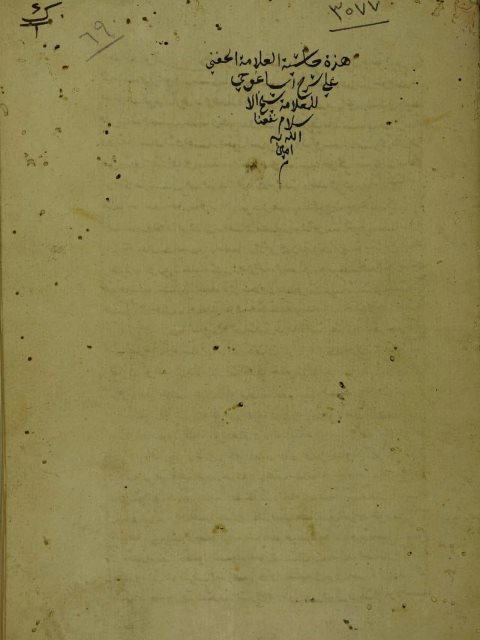 ٣٥٧٧
٦٩
هذه حاشية العلامة الحفني
على شرح ايساغوجي
للعلامة شيخ الا
سلام نفعنا
الله به
امين
م